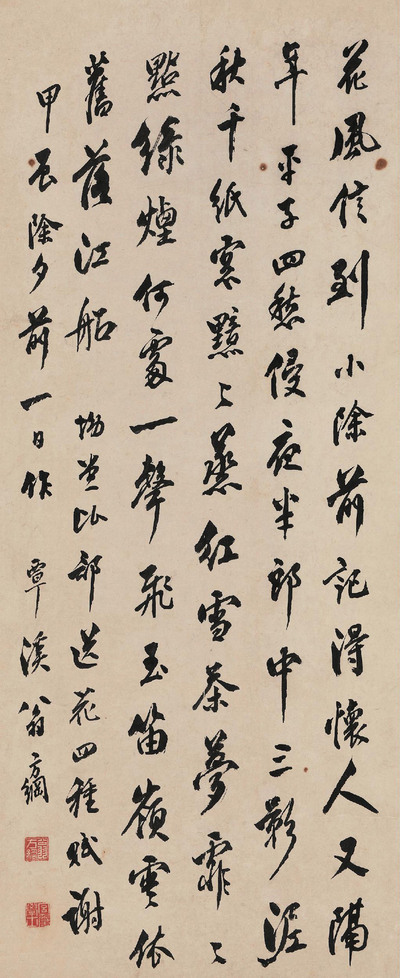 花風信到小除前記得懷人又隔
年平子四愁侵夜半郎中三影溼
秋千紙窓黯〻蒸紅雪茶夢霏〻
點綠煙何處一聲飛玉笛嶺雲依
舊落江船 坳堂比部送花四種賦謝
甲辰除夕前一日作 覃溪翁方綱